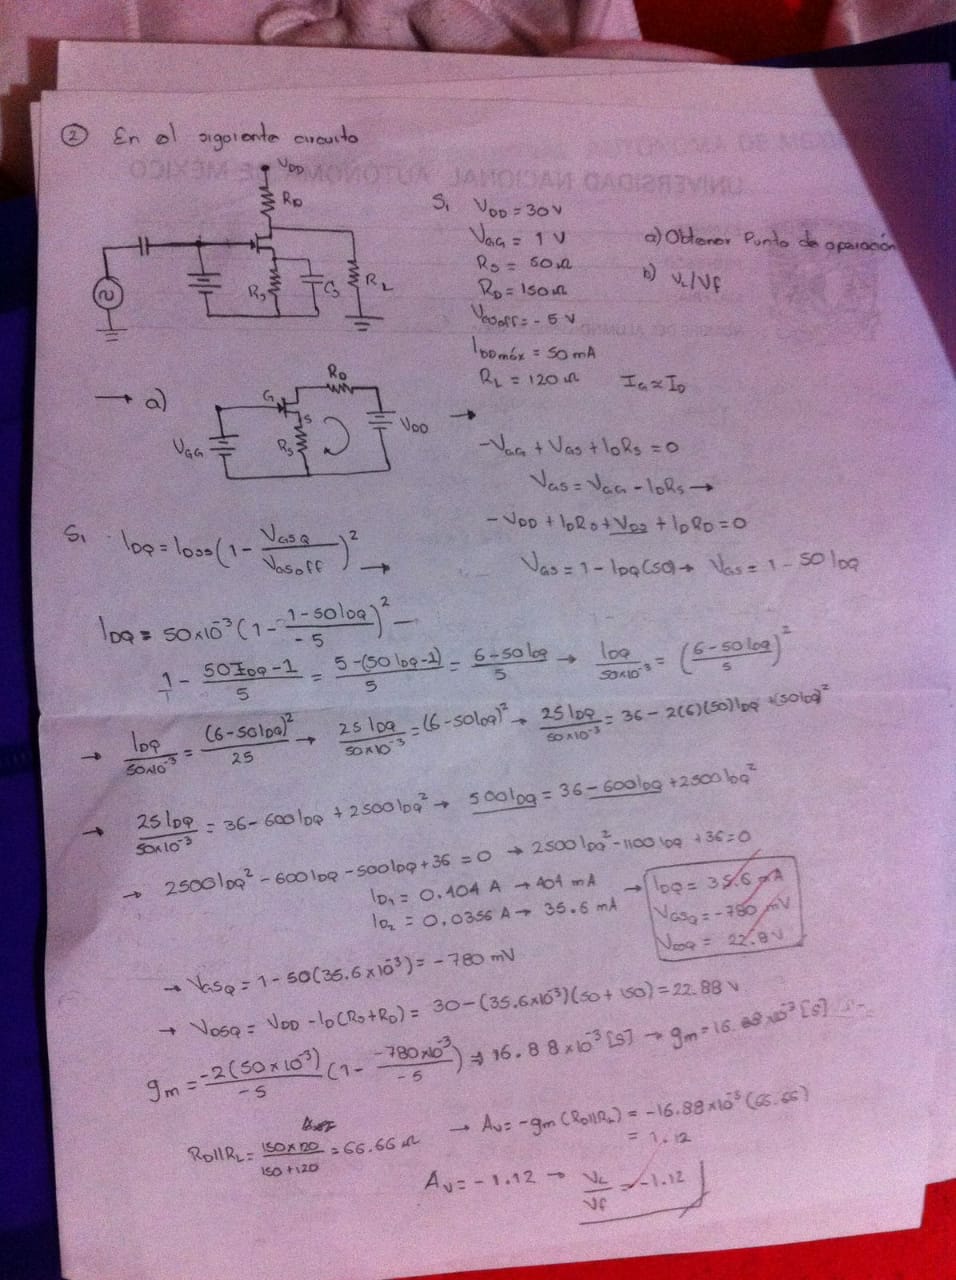 ② En el siguiente circuito
VDD
RD
RS
CS
RL
Si VDD = 30V
VGG = 1 V
RS = 50Ω
RD = 150Ω
VGSoff = - 5 V
IDDmáx = 50 mA
RL = 120 Ω IG ≈ ID
a) Obtener Punto de operación
b) VL/Vf
→ a)
RD
G
S
VGG
RS
VDD
→
-VGG + VGS + IDRS = 0
VGS = VGG - IDRS →
-VDD + IDRD + VDS + IDRD = 0
VGS = 1 - IDQ(50) → VGS = 1 - 50 IDQ
Si IDQ = IDSS(1 - VGSQ/VGSoff)² →
IDQ = 50x10⁻³(1 - (1-50IDQ)/-5)² —
1/1 - (50IDQ-1)/5 = (5-(50IDQ-1))/5 = (6-50IDQ)/5 → IDQ/50x10⁻³ = ((6-50IDQ)/5)²
→ IDQ/50x10⁻³ = (6-50IDQ)²/25 → 25IDQ/50x10⁻³ = (6-50IDQ)² → 25IDQ/50x10⁻³ = 36-2(6)(50)IDQ+(50IDQ)²
→ 25IDQ/50x10⁻³ = 36-600IDQ+2500IDQ² → 500IDQ = 36-600IDQ+2500IDQ²
→ 2500IDQ²-600IDQ-500IDQ+36 = 0 → 2500IDQ²-1100IDQ+36=0
ID1 = 0.404 A → 404 mA
ID2 = 0.0356 A → 35.6 mA
→ IDQ = 35.6 mA
VGSQ = -780 mV
VDDQ = 22.8 V
→ VGSQ = 1-50(35.6x10⁻³) = -780 mV
→ VDSQ = VDD-ID(RS+RD) = 30-(35.6x10⁻³)(50+150) = 22.88 V
gm = -2(50x10⁻³)/-5 (1 - -780x10⁻³/-5) → 16.88x10⁻³[S] → gm = 16.88x10⁻³[S]
RD||RL = 150x120/150+120 = 66.66 Ω
→ AV = -gm(RD||RL) = -16.88x10⁻³(66.66)
= 1.12
AV = -1.12 → VL/Vf = -1.12